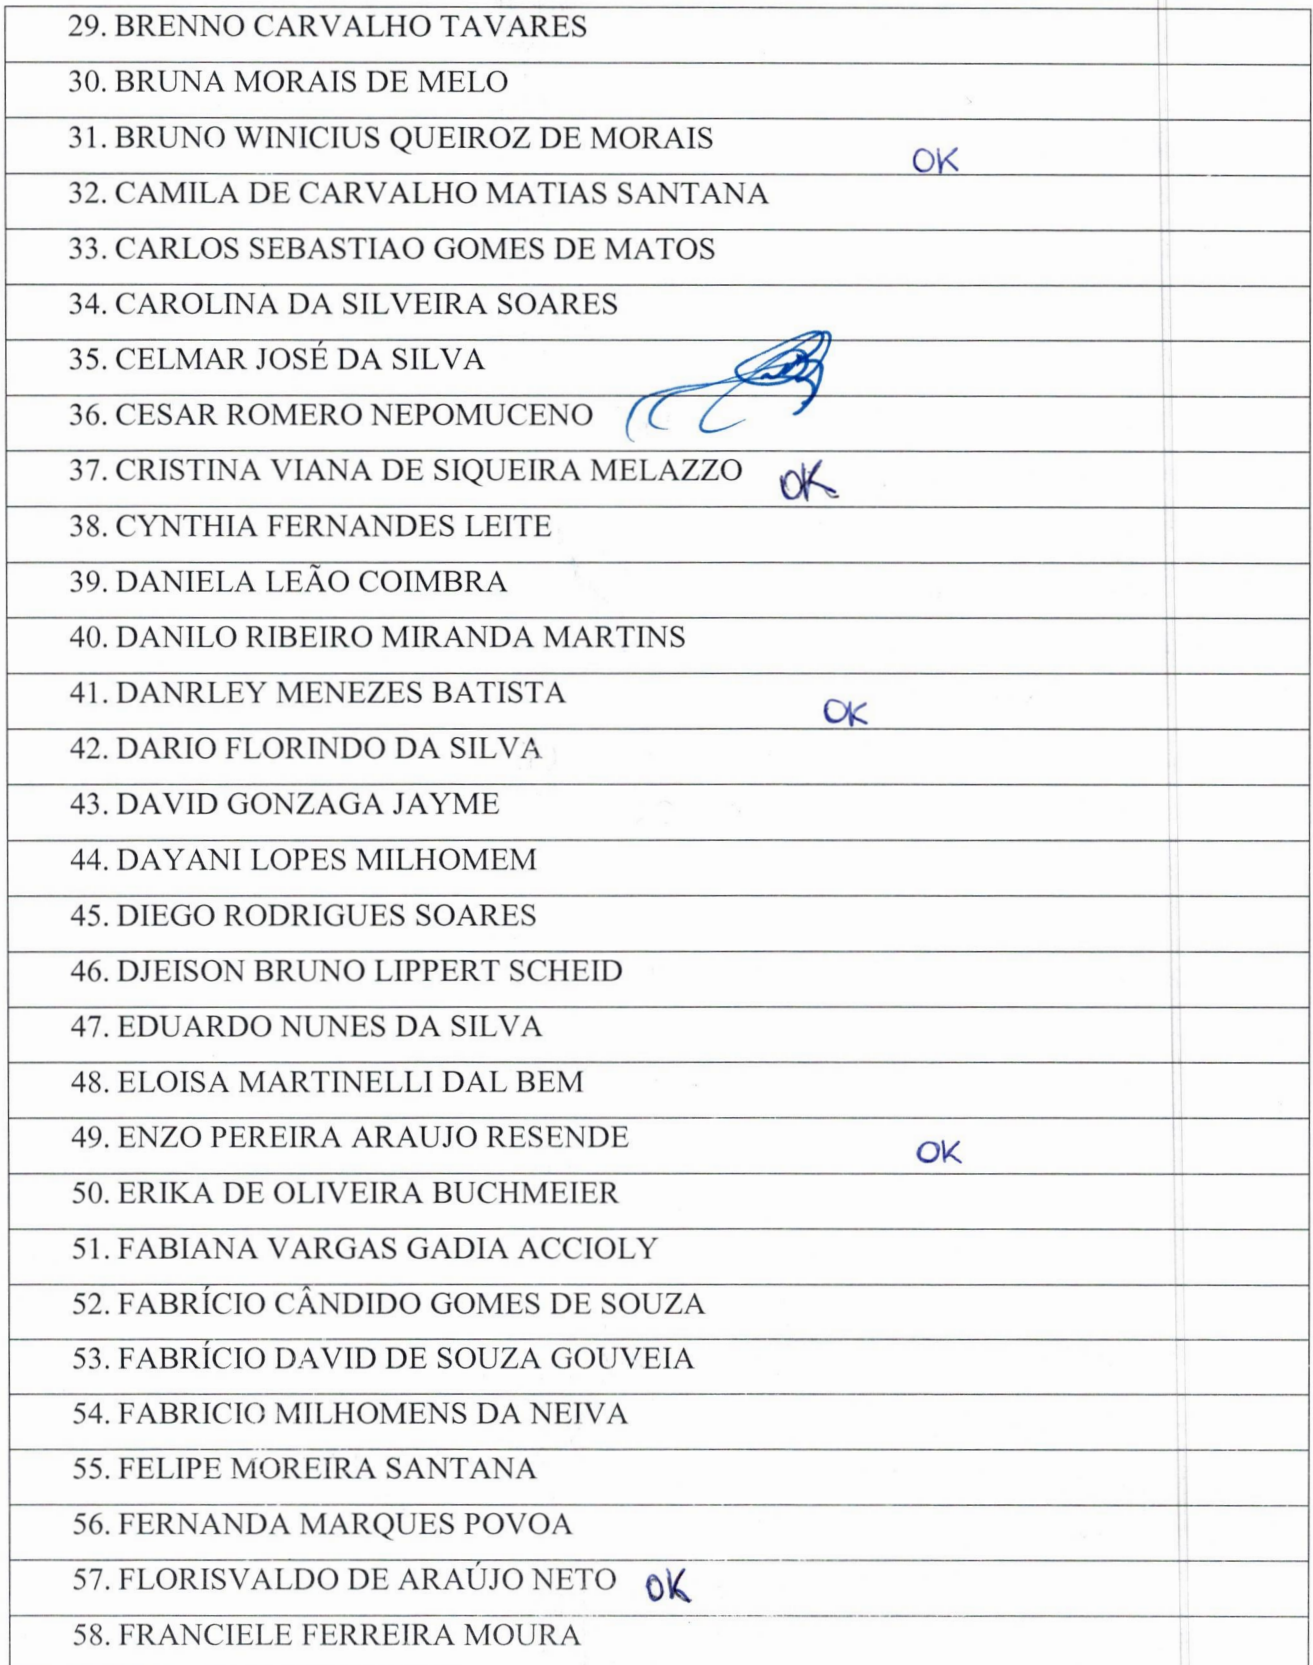 29. BRENNO CARVALHO TAVARES
30. BRUNA MORAIS DE MELO
31. BRUNO WINICIUS QUEIROZ DE MORAIS OK
32. CAMILA DE CARVALHO MATIAS SANTANA
33. CARLOS SEBASTIAO GOMES DE MATOS
34. CAROLINA DA SILVEIRA SOARES
35. CELMAR JOSÉ DA SILVA
36. CESAR ROMERO NEPOMUCENO
37. CRISTINA VIANA DE SIQUEIRA MELAZZO OK
38. CYNTHIA FERNANDES LEITE
39. DANIELA LEÃO COIMBRA
40. DANILO RIBEIRO MIRANDA MARTINS
41. DANRLEY MENEZES BATISTA OK
42. DARIO FLORINDO DA SILVA
43. DAVID GONZAGA JAYME
44. DAYANI LOPES MILHOMEM
45. DIEGO RODRIGUES SOARES
46. DJEISON BRUNO LIPPERT SCHEID
47. EDUARDO NUNES DA SILVA
48. ELOISA MARTINELLI DAL BEM
49. ENZO PEREIRA ARAUJO RESENDE OK
50. ERIKA DE OLIVEIRA BUCHMEIER
51. FABIANA VARGAS GADIA ACCIOLY
52. FABRÍCIO CÂNDIDO GOMES DE SOUZA
53. FABRÍCIO DAVID DE SOUZA GOUVEIA
54. FABRICIO MILHOMENS DA NEIVA
55. FELIPE MOREIRA SANTANA
56. FERNANDA MARQUES POVOA
57. FLORISVALDO DE ARAÚJO NETO OK
58. FRANCIELE FERREIRA MOURA